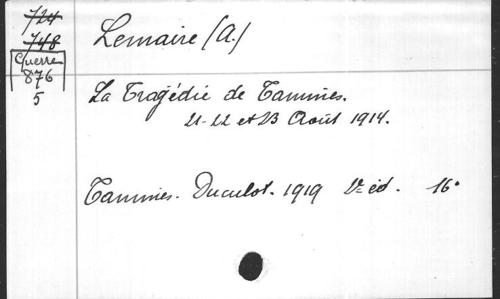 724
748
Guerre
876
5
Lemaire (A.)
La Tragédie de Tamines.
21-22 et 23 Août 1914.
Tamines. Duculot. 1919 Vᵉ éd. 16°